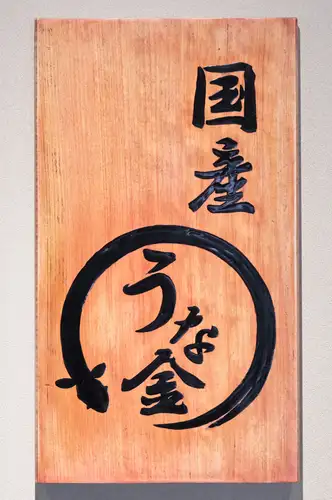 国産
うな金